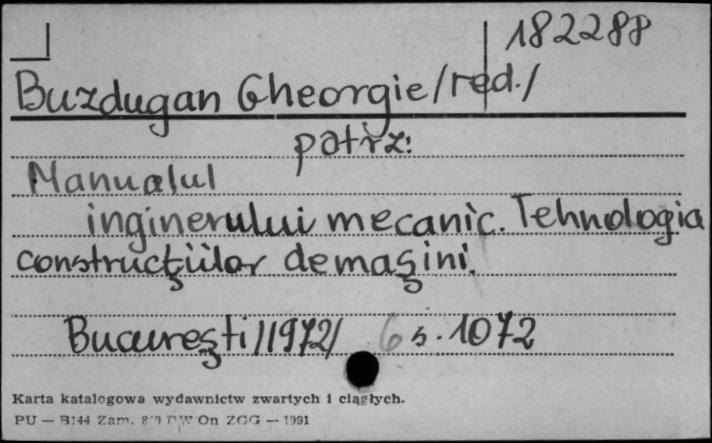 182288
Buzdugan Gheorgie /red./
patrz:
Manualul
inginerului mecanic. Tehnologia
construcţiilor de maşini.
Bucureşti /1972/ s. 1072
Karta katalogowa wydawnictw zwartych i ciągłych.
PU — B144 Zam. DW/On ZGG — 1991